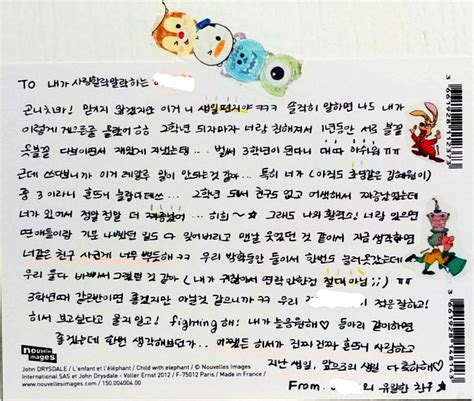 TO 내가 사랑할락말락하는
곤니치와! 믿겨지 않겠지만 이거 니 생일편지야 ㅋㅋㅋ 솔직히 말하면 나도 내가
이렇게 게으른줄 몰랐어 ㅎㅎ 2학년 되자마자 너랑 친해져서 1년동안 서로 볼꼴
못볼꼴 다보이면서 재밌게 지냈는데... 벌써 3학년이 된다니 대다 아쉬워 ㅠㅠ
근데 쓰다보니까 이거 레알루 말이 안되는것 같아... 특히 너 (아직도
중3이라니 흔드니 놀라다데쓰... 2학년 되서 친구도 없고 어색해서 지루했는데
너가 있어서 정말 정말 더 재밌었어 ... 히히 ~☆ 그래도 나의 활력요! 너랑 있으면
연애들이랑 기분 나빴던 일도 다 잊어버리고 맨날 웃었던 것 같아서 지금 생각하면
너같은 친구 사귄게 너무 뿌듯해 ㅋㅋ 우리 방학동안 둘이서 한번도 놀러못갔는데
우리 둘다 바빠서 그랬던 것 같아 (내가 귀찮아서 연락 안한건 절대 아님;;) ㅠㅠ
3학년때 같은반이면 좋겠지만 아닐것 같으니까 ㅋㅋ 우리 적응잘하고!
혀서 보고싶다고 울지말고! fighting해! 내가 늘응원해♡ 둘이라 같이하면
좋겠는데 한번 생각해보던가... 어쨌든 혀서가 진짜 진짜 흔드니 사랑하고
지난 생일, 앞으로의 생일 다 축하해♡
From. 의 유일한 친구
nouvelles images
John DRYSDALE / L'enfant et l'éléphant / Child with elephant / © Nouvelles Images
International SAS et John Drysdale - Voller Ernst 2012 / F-75012 Paris / Made in France /
www.nouvellesimages.com / 150.004004.00